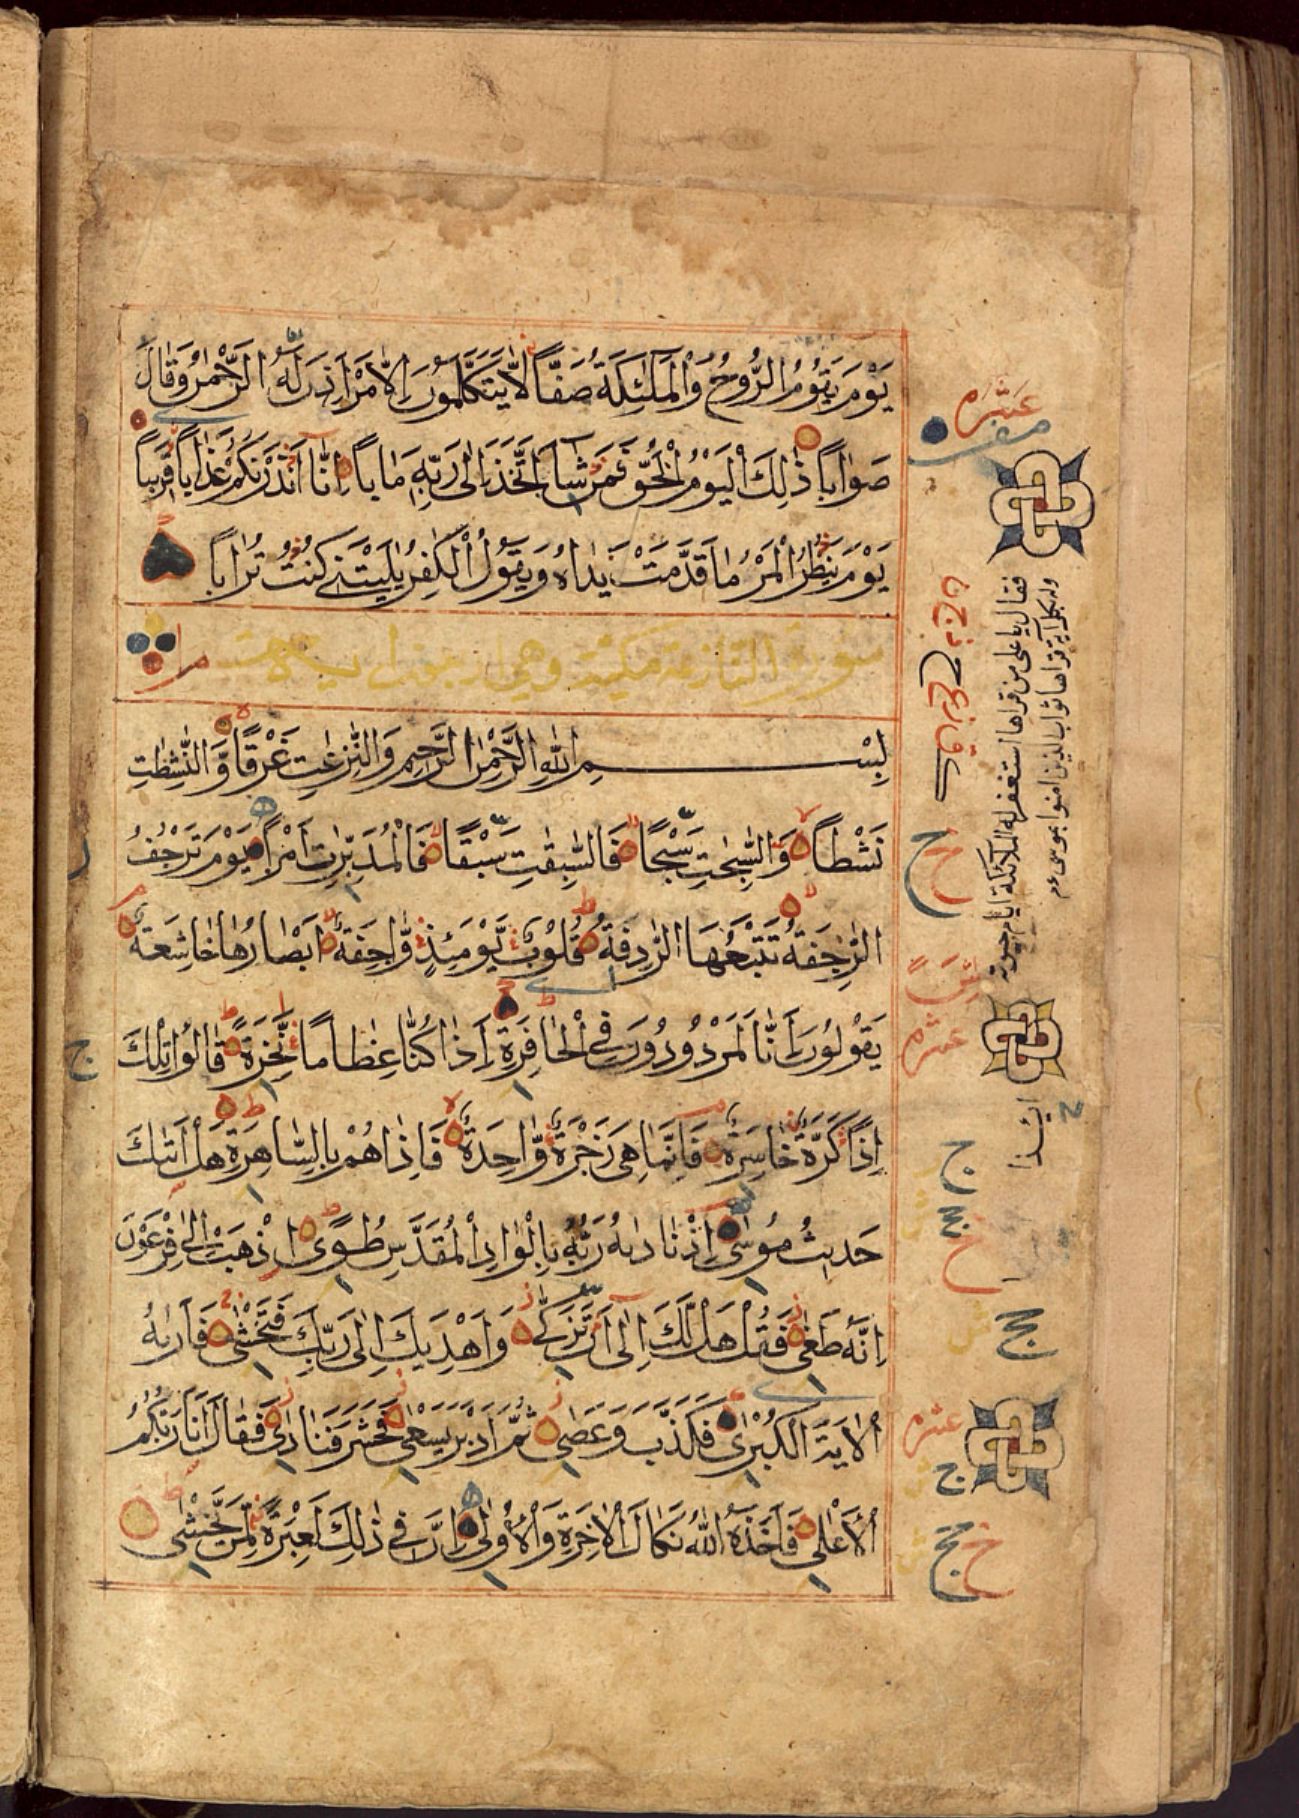 يَوْمَ يَقُوْمُ الرُّوْحُ وَالْمَلٰئِكَةُ صَفًّا لَا يَتَكَلَّمُوْنَ اِلَّا مَنْ اَذِنَ لَهُ الرَّحْمٰنُ وَقَالَ
صَوَابًا ذٰلِكَ الْيَوْمُ الْحَقُّ فَمَنْ شَاءَ اتَّخَذَ اِلٰى رَبِّهٖ مَاٰبًا اِنَّا اَنْذَرْنٰكُمْ عَذَابًا قَرِيْبًا
يَوْمَ يَنْظُرُ الْمَرْءُ مَا قَدَّمَتْ يَدَاهُ وَيَقُوْلُ الْكٰفِرُ يٰلَيْتَنِىْ كُنْتُ تُرَابًا
سورة النازعة مكية وهي اربعون
بِسْمِ اللّٰهِ الرَّحْمٰنِ الرَّحِيْمِ وَالنّٰزِعٰتِ غَرْقًا وَّالنّٰشِطٰتِ
نَشْطًا وَّالسّٰبِحٰتِ سَبْحًا فَالسّٰبِقٰتِ سَبْقًا فَالْمُدَبِّرٰتِ اَمْرًا يَوْمَ تَرْجُفُ
الرَّاجِفَةُ تَتْبَعُهَا الرَّادِفَةُ قُلُوْبٌ يَّوْمَئِذٍ وَّاجِفَةٌ اَبْصَارُهَا خَاشِعَةٌ
يَقُوْلُوْنَ ءَاِنَّا لَمَرْدُوْدُوْنَ فِى الْحَافِرَةِ ءَاِذَا كُنَّا عِظَامًا نَّخِرَةً قَالُوْا تِلْكَ
اِذًا كَرَّةٌ خَاسِرَةٌ فَاِنَّمَا هِىَ زَجْرَةٌ وَّاحِدَةٌ فَاِذَا هُمْ بِالسَّاهِرَةِ هَلْ اَتٰكَ
حَدِيْثُ مُوْسٰى اِذْ نَادٰىهُ رَبُّهٗ بِالْوَادِ الْمُقَدَّسِ طُوًى اِذْهَبْ اِلٰى فِرْعَوْنَ
اِنَّهٗ طَغٰى فَقُلْ هَلْ لَّكَ اِلٰى اَنْ تَزَكّٰى وَاَهْدِيَكَ اِلٰى رَبِّكَ فَتَخْشٰى فَاَرٰىهُ
الْاٰيَةَ الْكُبْرٰى فَكَذَّبَ وَعَصٰى ثُمَّ اَدْبَرَ يَسْعٰى فَحَشَرَ فَنَادٰى فَقَالَ اَنَا رَبُّكُمُ
الْاَعْلٰى فَاَخَذَهُ اللّٰهُ نَكَالَ الْاٰخِرَةِ وَالْاُوْلٰى اِنَّ فِىْ ذٰلِكَ لَعِبْرَةً لِّمَنْ يَّخْشٰى
عشره
فقال يا علي من قراها استغفر له الملائكة ايام حيوته
وله بكل اية قراها ثواب الذين امنوا بموسى ع م
ج
عشره
ج
عشره
ج